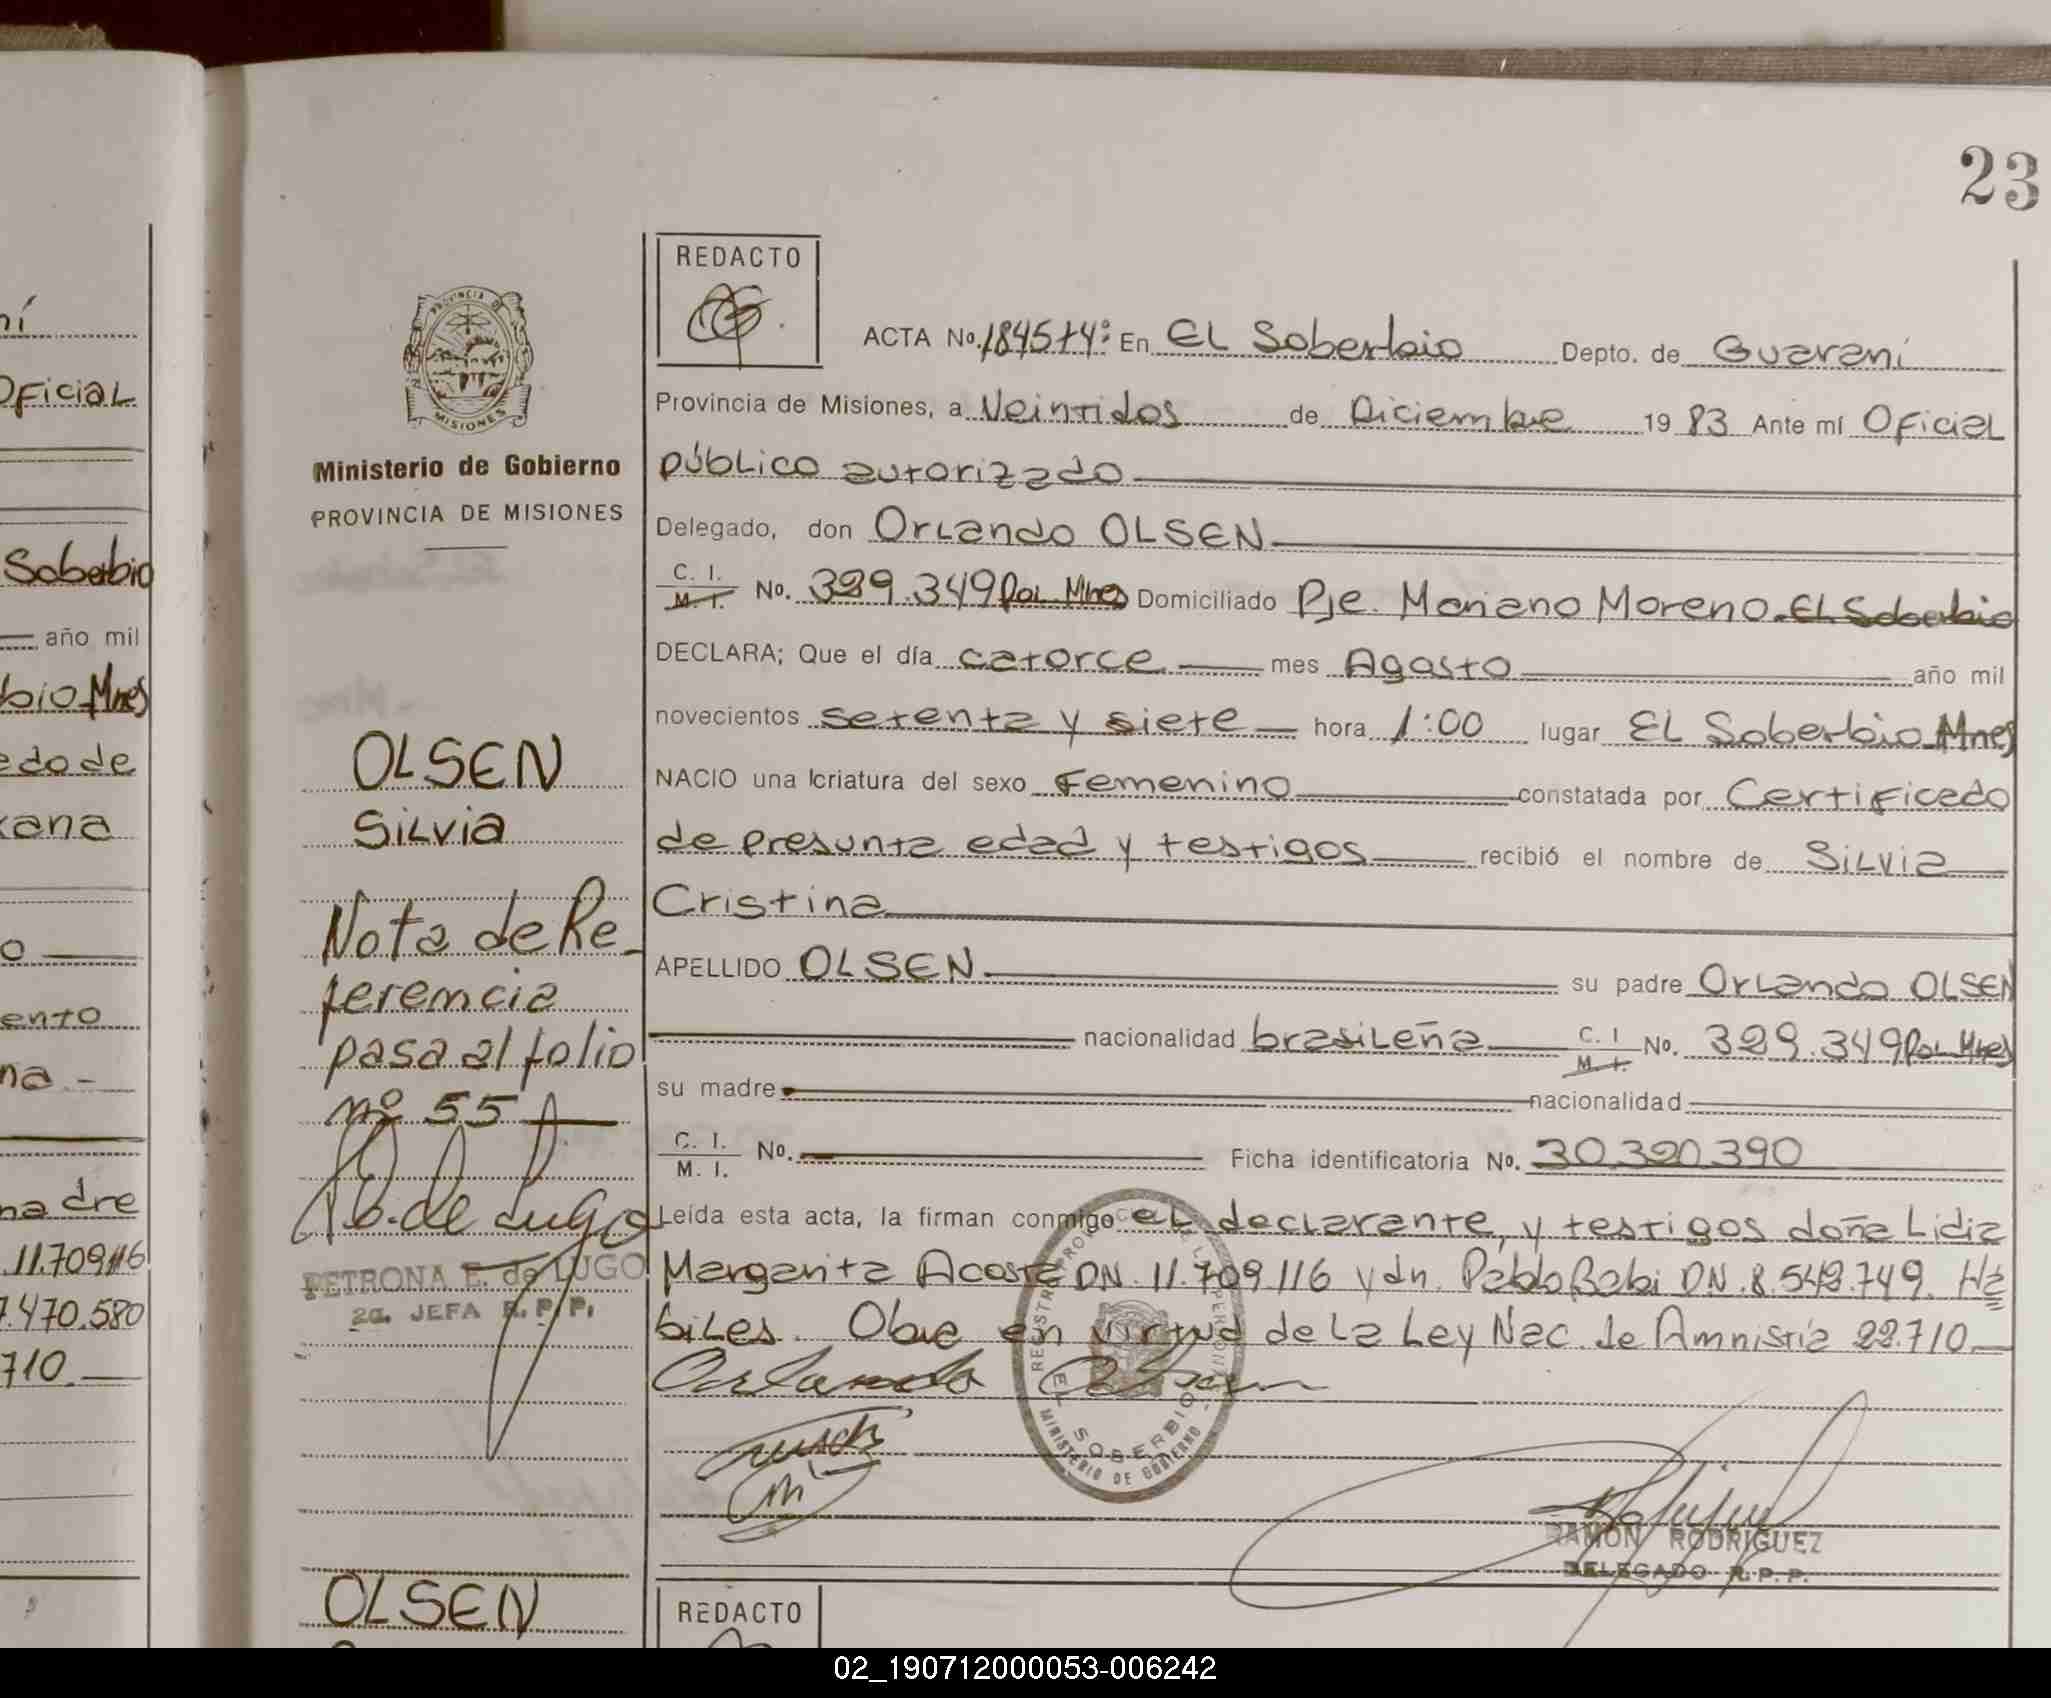 23
ní
Oficial
Soberbio
año mil
bio Mnes
edo de
xana
o
ento
na -
madre
11.709116
7.470.580
710.
PROVINCIA DE
MISIONES
Ministerio de Gobierno
PROVINCIA DE MISIONES
OLSEN
Silvia
Nota de Re-
ferencia
pasa al folio
nº 55
P. E. de Lugo
PETRONA E. de LUGO
2a. JEFA R. P. P.
OLSEN
REDACTO
ACTA No. 1845T4: En El Soberbio Depto. de Guaraní
Provincia de Misiones, a Veintidos de Diciembre 19 83 Ante mí Oficial
público autorizado
Delegado, don Orlando OLSEN
C. I. M. I. No. 329.349 Pol Mnes Domiciliado Pje. Mariano Moreno. El Soberbio
DECLARA; Que el día catorce mes Agosto año mil
novecientos setenta y siete hora 1:00 lugar El Soberbio Mnes
NACIO una criatura del sexo Femenino constatada por Certificado
de presunta edad y testigos recibió el nombre de Silvia
Cristina
APELLIDO OLSEN su padre Orlando OLSEN
nacionalidad brasileña C. I M. I. No. 329.349 Pol Mnes
su madre nacionalidad
C. I. M. I. No. Ficha identificatoria No. 30.320.390
Leída esta acta, la firman conmigo el declarante, y testigos doña Lidia
Margarita Acosta DN. 11.709.116 y dn. Pablo Babi DN. 8.542.749. Há
biles. Obre en virtud de la Ley Nac. de Amnistía 22.710
Orlando Olsen
EL SOBERBIO
MINISTERIO DE GOBIERNO
RAMON RODRIGUEZ
DELEGADO R. P. P.
REDACTO
02_190712000053-006242